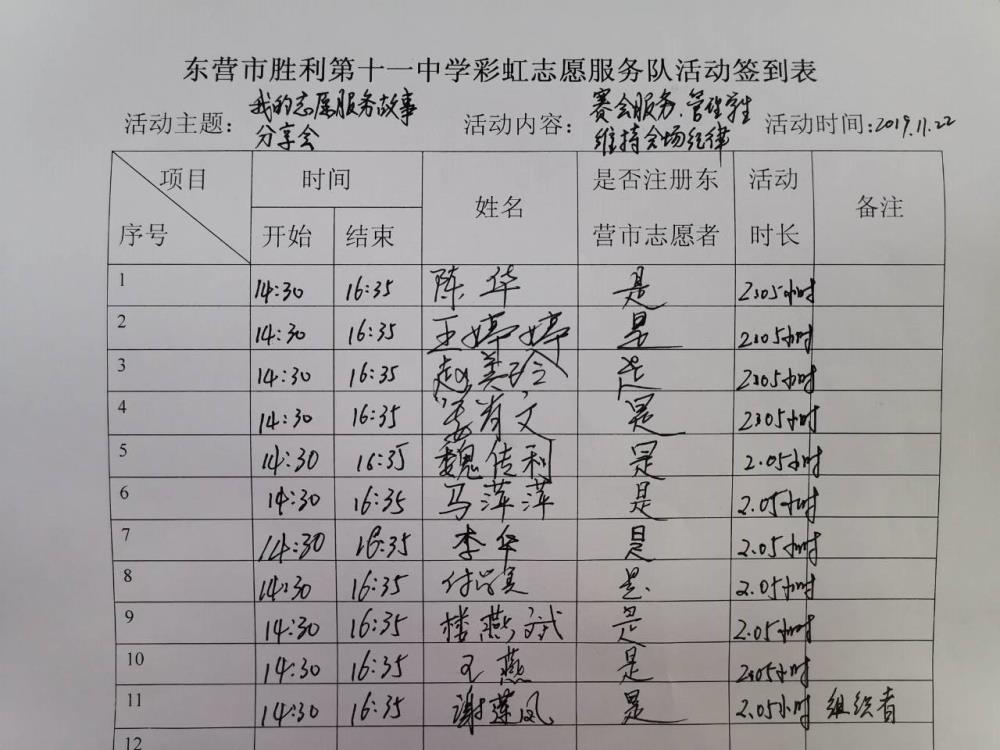 东营市胜利第十一中学彩虹志愿服务队活动签到表
活动主题: 我的志愿服务故事 分享会 活动内容: 赛会服务、管理学生 维持会场纪律 活动时间: 2019.11.22
项目 时间 姓名 是否注册东营市志愿者 活动时长 备注
序号 开始 结束
1 14:30 16:35 陈华 是 2.05小时
2 14:30 16:35 王婷婷 是 2.05小时
3 14:30 16:35 赵美玲 是 2.05小时
4 14:30 16:35 肖文 是 2.05小时
5 14:30 16:35 魏传利 是 2.05小时
6 14:30 16:35 马萍萍 是 2.05小时
7 14:30 16:35 李华 是 2.05小时
8 14:30 16:35 是 2.05小时
9 14:30 16:35 楼燕斌 是 2.05小时
10 14:30 16:35 王燕 是 2.05小时
11 14:30 16:35 谢莲凤 是 2.05小时 组织者
12